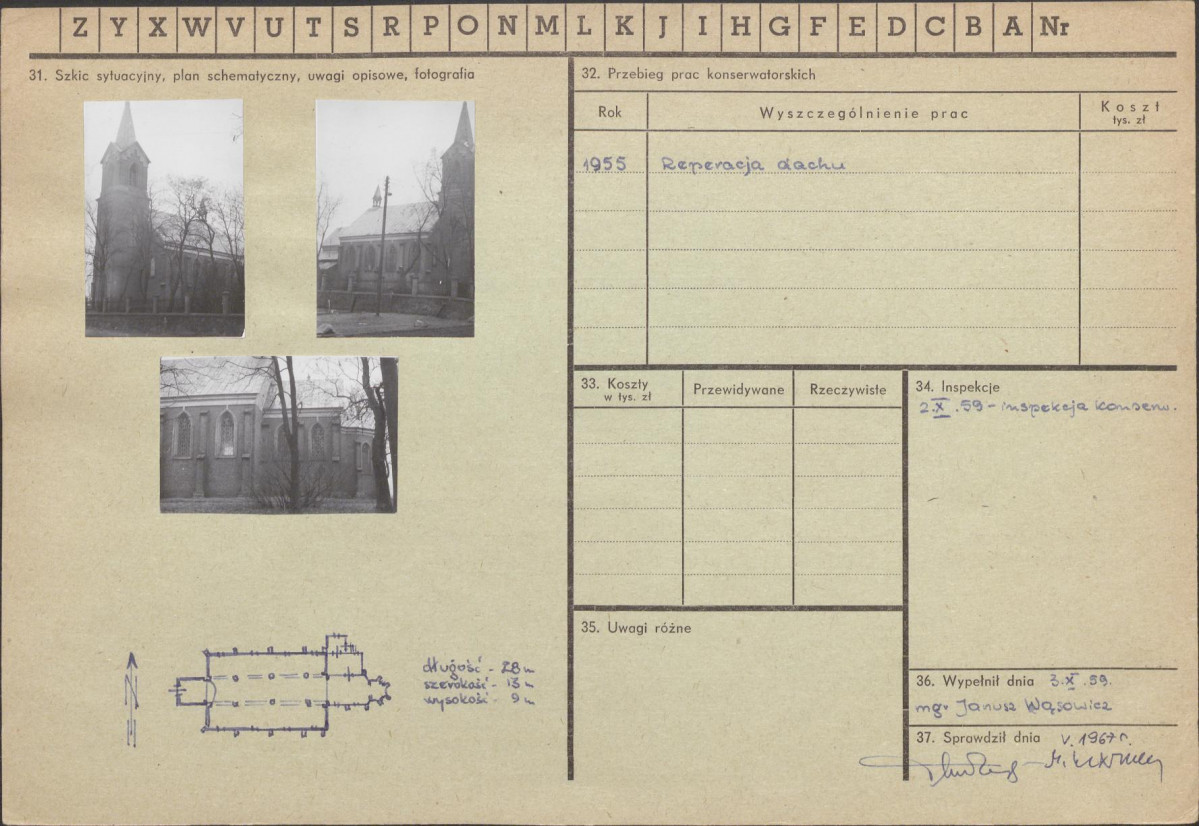 Z Y X W V U T S R P O N M L K J I H G F E D C B A Nr
31. Szkic sytuacyjny, plan schematyczny, uwagi opisowe, fotografia
N
długość - 28 m
szerokość - 13 m
wysokość - 9 m
32. Przebieg prac konserwatorskich
Rok Wyszczególnienie prac Koszt
tys. zł
1955 Reperacja dachu
33. Koszty Przewidywane Rzeczywiste
w tys. zł
34. Inspekcje
2.X.59 - inspekcja konserw.
35. Uwagi różne
36. Wypełnił dnia 3.X.59.
mgr Janusz Wąsowicz
37. Sprawdził dnia V. 1967 r.